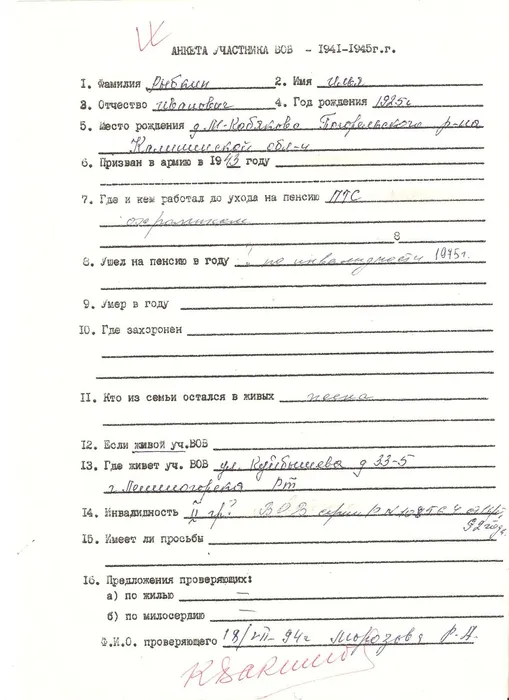 АНКЕТА УЧАСТНИКА ВОВ - 1941-1945г.г.
1. Фамилия Рыбкин 2. Имя Илья
3. Отчество Иванович 4. Год рождения 1925г
5. Место рождения д. М-Кобяково Погорельского р-на
Калининской обл-и
6. Призван в армию в 1943 году
7. Где и кем работал до ухода на пенсию ПТС
8
8. Ушел на пенсию в году по инвалидности 1945г.
9. Умер в году
10. Где захоронен
11. Кто из семьи остался в живых жена
12. Если живой уч.ВОВ
13. Где живет уч. ВОВ ул. Куйбышева д 33-5
г. Лениногорска РТ
14. Инвалидность II гр? ВОВ серия
92 года
15. Имеет ли просьбы
16. Предложения проверяющих:
а) по жилью —
б) по милосердию —
Ф.И.О. проверяющего 18/VII-94г Морозова Р.А.